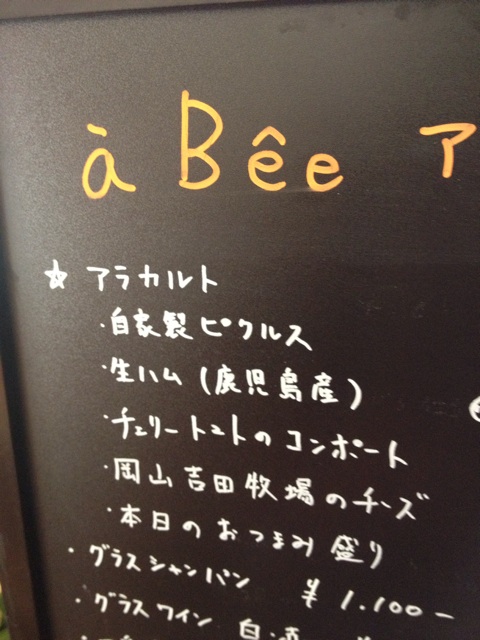 à Bêe ア
☆ アラカルト
・自家製ピクルス
・生ハム (鹿児島産)
・チェリートマトのコンポート
・岡山吉田牧場のチーズ
・本日のおつまみ盛り
・グラスシャンパン ¥1.100-
・グラスワイン 白・赤